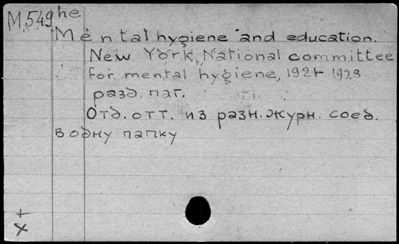 M549he
Mental hygiene and education.
New York, National committee
for mental hygiene, 1921-1923
разд. паг.
Отд. отт. из разн. журн. соед.
в одну папку
+
х